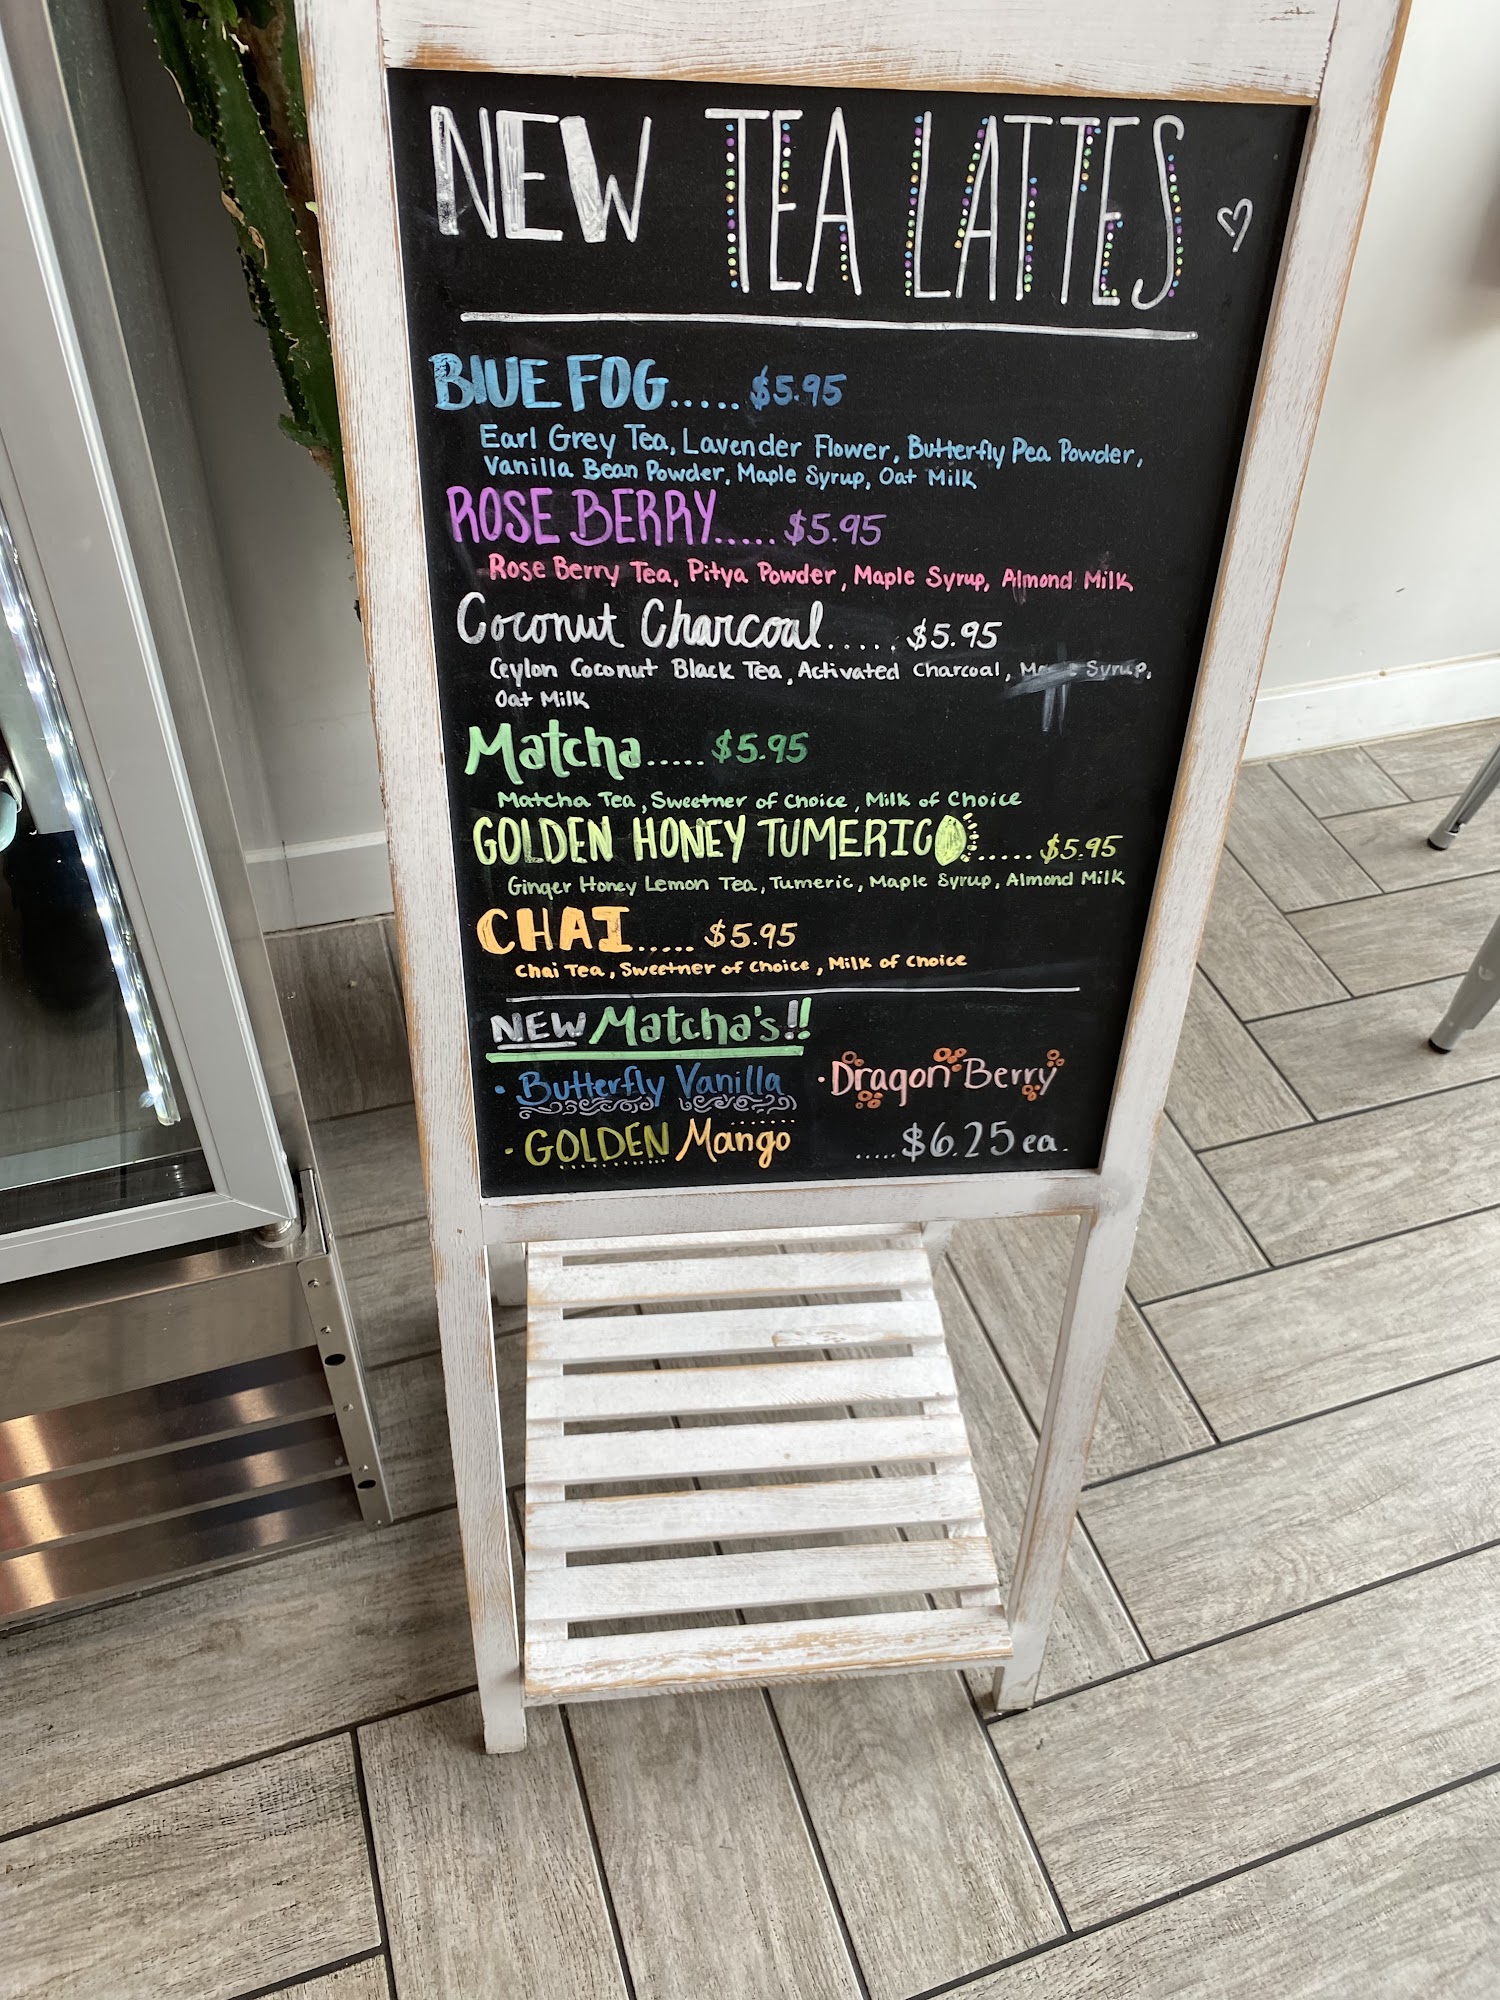 NEW TEA LATTES
BLUE FOG..... $5.95
Earl Grey Tea, Lavender Flower, Butterfly Pea Powder,
Vanilla Bean Powder, Maple Syrup, Oat Milk
ROSE BERRY..... $5.95
Rose Berry Tea, Pitya Powder, Maple Syrup, Almond Milk
Coconut Charcoal..... $5.95
Ceylon Coconut Black Tea, Activated Charcoal, Maple Syrup,
Oat Milk
Matcha..... $5.95
Matcha Tea, Sweetner of Choice, Milk of Choice
GOLDEN HONEY TUMERIC..... $5.95
Ginger Honey Lemon Tea, Tumeric, Maple Syrup, Almond Milk
CHAI..... $5.95
Chai Tea, Sweetner of Choice, Milk of Choice
NEW Matcha's!!
· Butterfly Vanilla · Dragon Berry
· GOLDEN Mango ..... $6.25 ea.